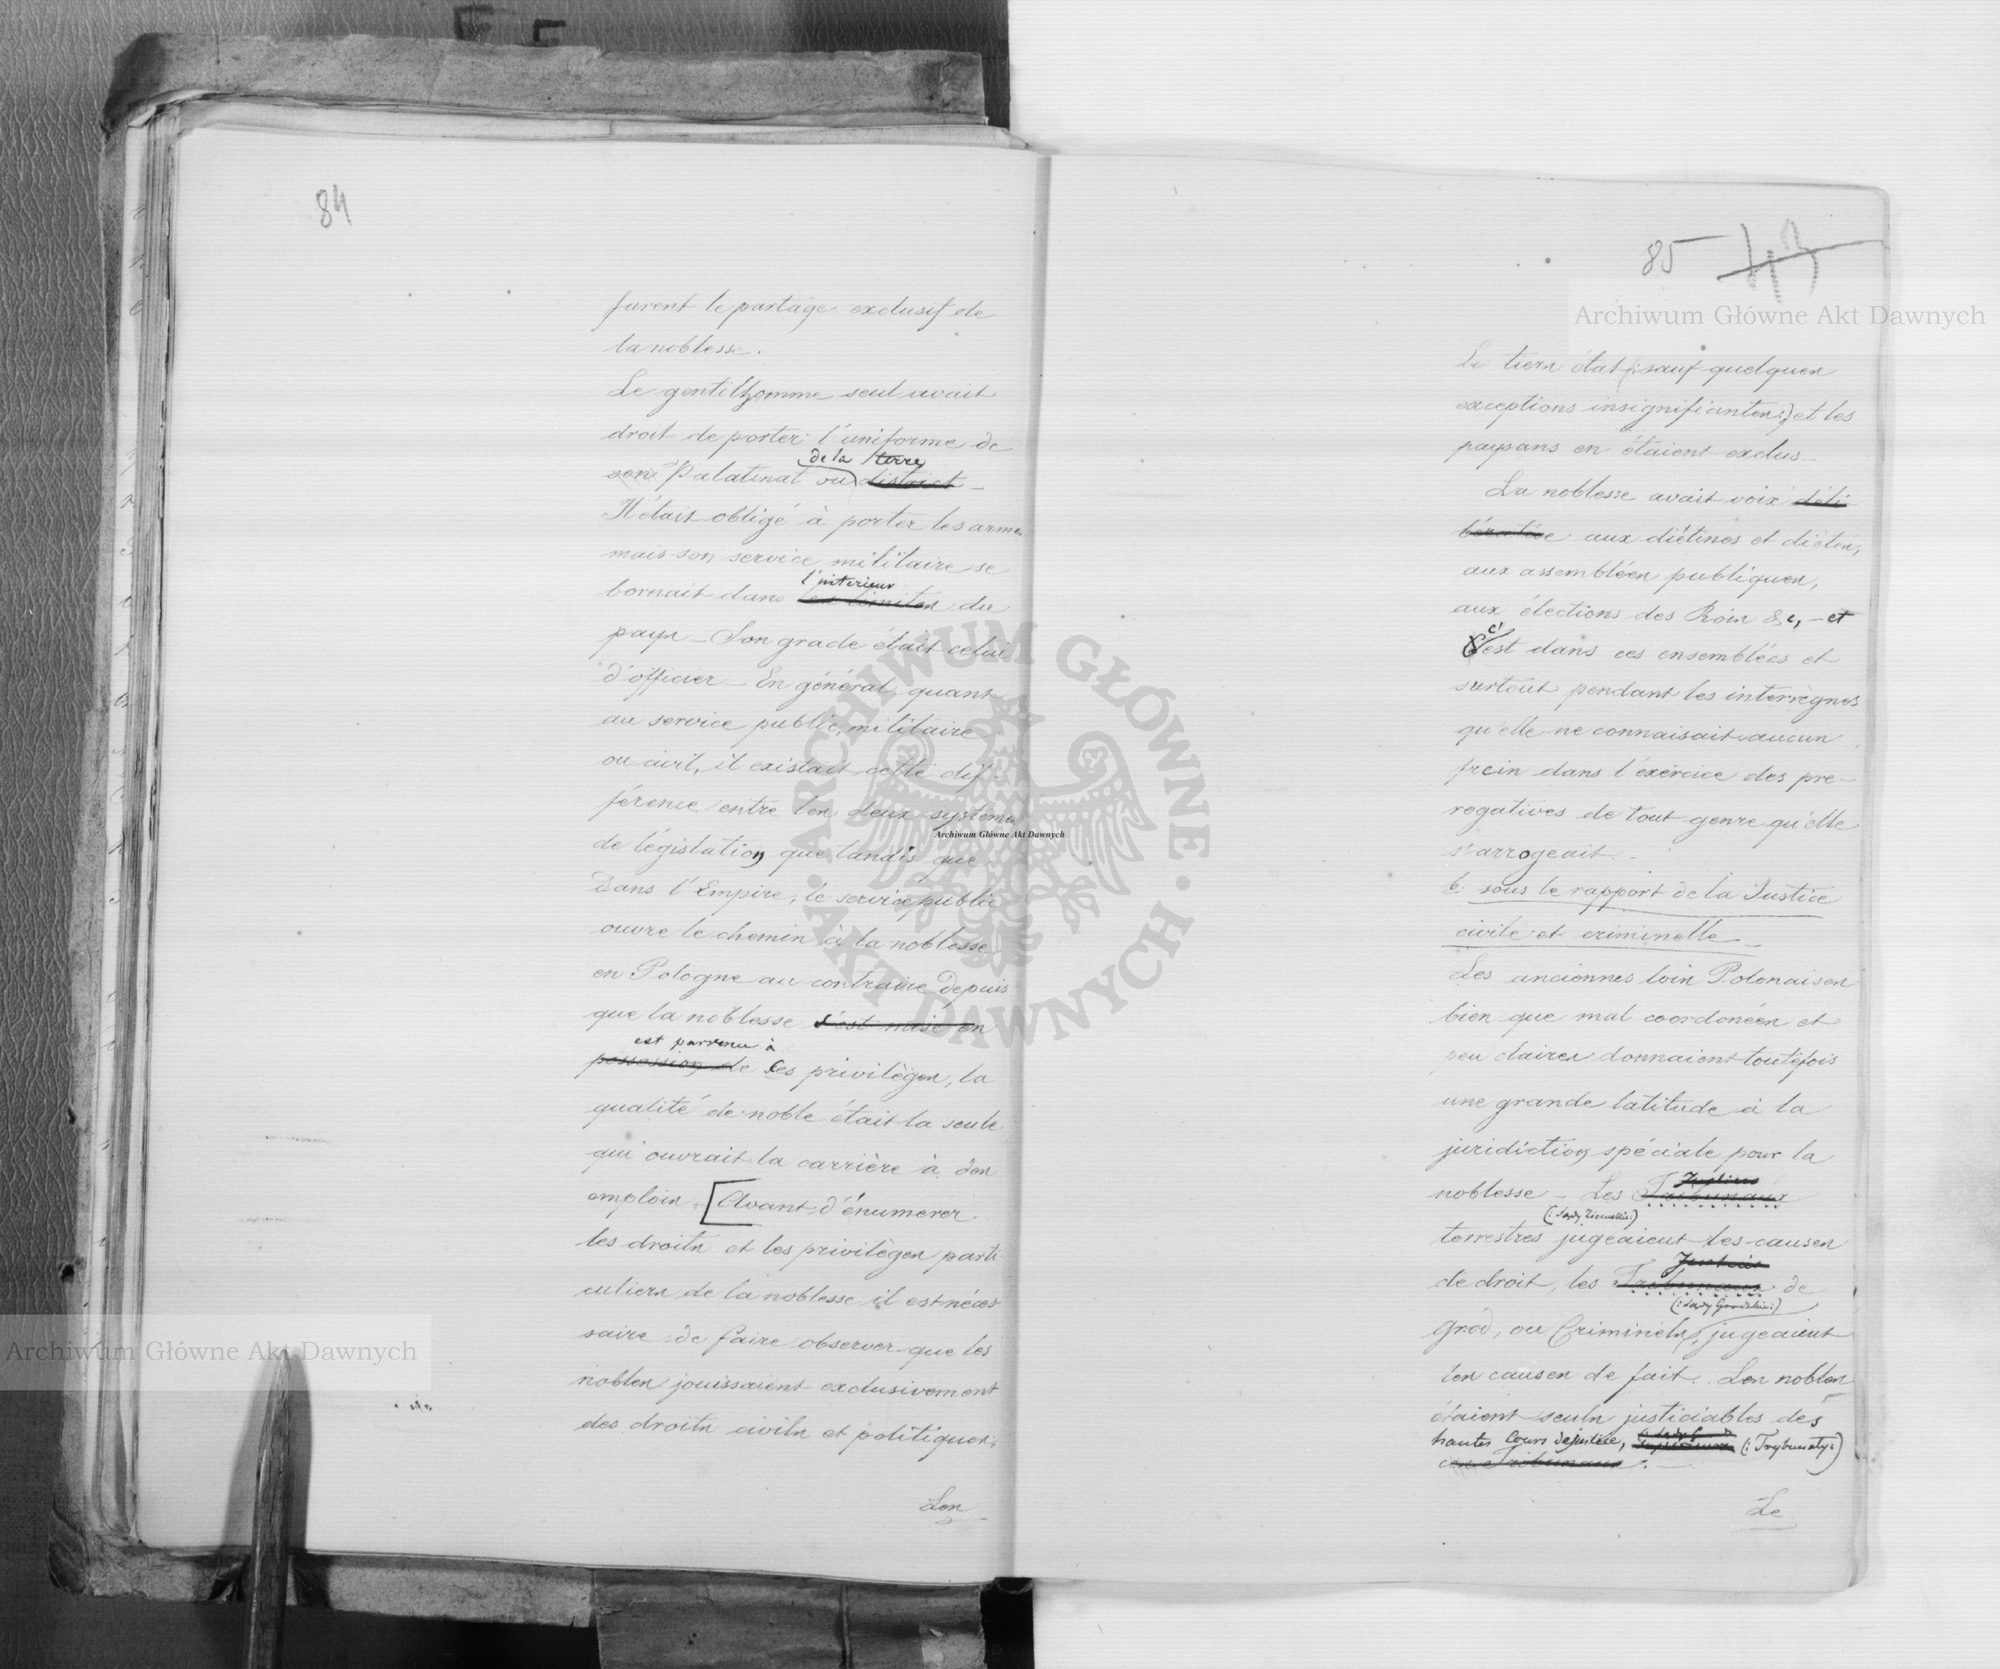 84
furent le partage exclusif de
la noblesse.
Le gentilhomme seul avait
droit de porter l'uniforme de
de la terre
son Palatinat ou district —
Il était obligé à porter les armes
mais son service militaire se
l'interieur
bornait dans les limites du
pays — Son grade était celui
d'officier — En général quant
au service public, militaire
ou civil, il existait cette dif-
férence entre les deux systèmes
de législation que tandis que
dans l'Empire, le service public
ouvre le chemin à la noblesse
en Pologne au contraire depuis
que la noblesse s'est mise en
est parvenu à
possession de ces privilèges, la
qualité de noble était la seule
qui ouvrait la carrière à des
emplois. [Avant d'énumerer
les droits et les privilèges parti
culiers de la noblesse il est néces
saire de faire observer que les
nobles jouissaient exclusivement
des droits civils et politiques.
Les
85 43
Le tiers état (: sauf quelques
exceptions insignifiantes :) et les
paysans en étaient exclus —
La noblesse avait voix déli
bérative aux diétines et diètes,
aux assemblées publiques,
aux élections des Rois &c, — et
c'
C'est dans ces ensemblées et
surtout pendant les interrègnes
qu'elle ne connaisait aucun
frein dans l'exercice des pre-
rogatives de tout genre qu'elle
s'arrogeait. —
b. sous le rapport de la Justice
civile et criminelle —
Les anciennes lois Polonaises
bien que mal coordonées et
peu claires donnaient toutefois
une grande latitude à la
juridiction spéciale pour la
noblesse — Les Tribunaux
(: Sądy Ziemskie :)
terrestres jugeaient les causes
de droit, les Tribunaux de
(: Sądy Grodzkie :)
grod, ou Criminels, jugeaient
les causes de fait. Les nobles
étaient seuls justiciables des
hautes Cours de justice, (: Trybunały :)
ces Tribunaux. —
Le
Archiwum Główne Akt Dawnych
Archiwum Główne Akt Dawnych
Archiwum Główne Akt Dawnych
ARCHIWUM GŁÓWNE · AKT DAWNYCH ·